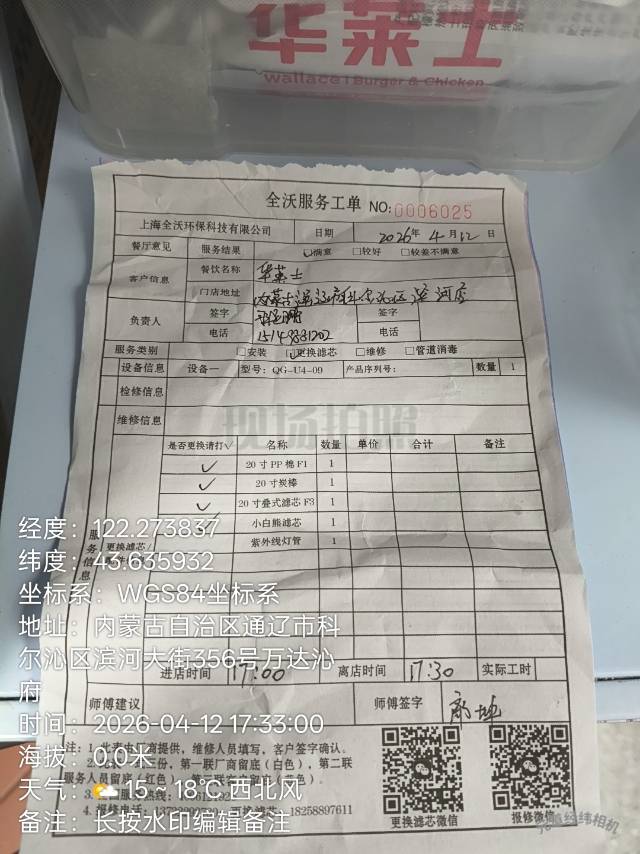 华莱士
Wallace | Burger & Chicken
全沃服务工单 NO:0006025
上海全沃环保科技有限公司 日期 2026年 4月 12日
餐厅意见 服务结果 ☑满意 □较好 □较差不满意
客户信息 餐饮名称 华莱士
门店地址 内蒙古通辽市科尔沁区滨河店
负责人 签字 签字
电话 15149881202 电话
服务类别 □安装 ☑更换滤芯 □维修 □管道消毒
设备信息 设备一 型号:QG-U4-09 产品序列号: 数量 1
检修信息
维修信息
现场拍照
是否更换请打√ 名称 数量 单价 合计 备注
✓ 20寸PP棉F1 1
✓ 20寸炭棒 1
✓ 20寸叠式滤芯F3 1
小白熊滤芯 1
紫外线灯管 1
服务信息
更换滤芯/
经度:122.273837
纬度:43.635932
坐标系:WGS84坐标系
地址:内蒙古自治区通辽市科
尔沁区滨河大街356号万达沁
府
时间:2026-04-12 17:33:00
海拔:0.0米
天气:15~18℃ 西北风
备注:长按水印编辑备注
进店时间 17:00 离店时间 17:30 实际工时
师傅建议 师傅签字
注:1. 商提供,维修人员填写,客户签字确认。
三份,第一联厂商留底(白色),第二联
服务人员留底(红色),第三联客户留底(蓝色)。
4. 报修电话: 更换滤芯:18258897611
更换滤芯微信 报修微信
经纬相机